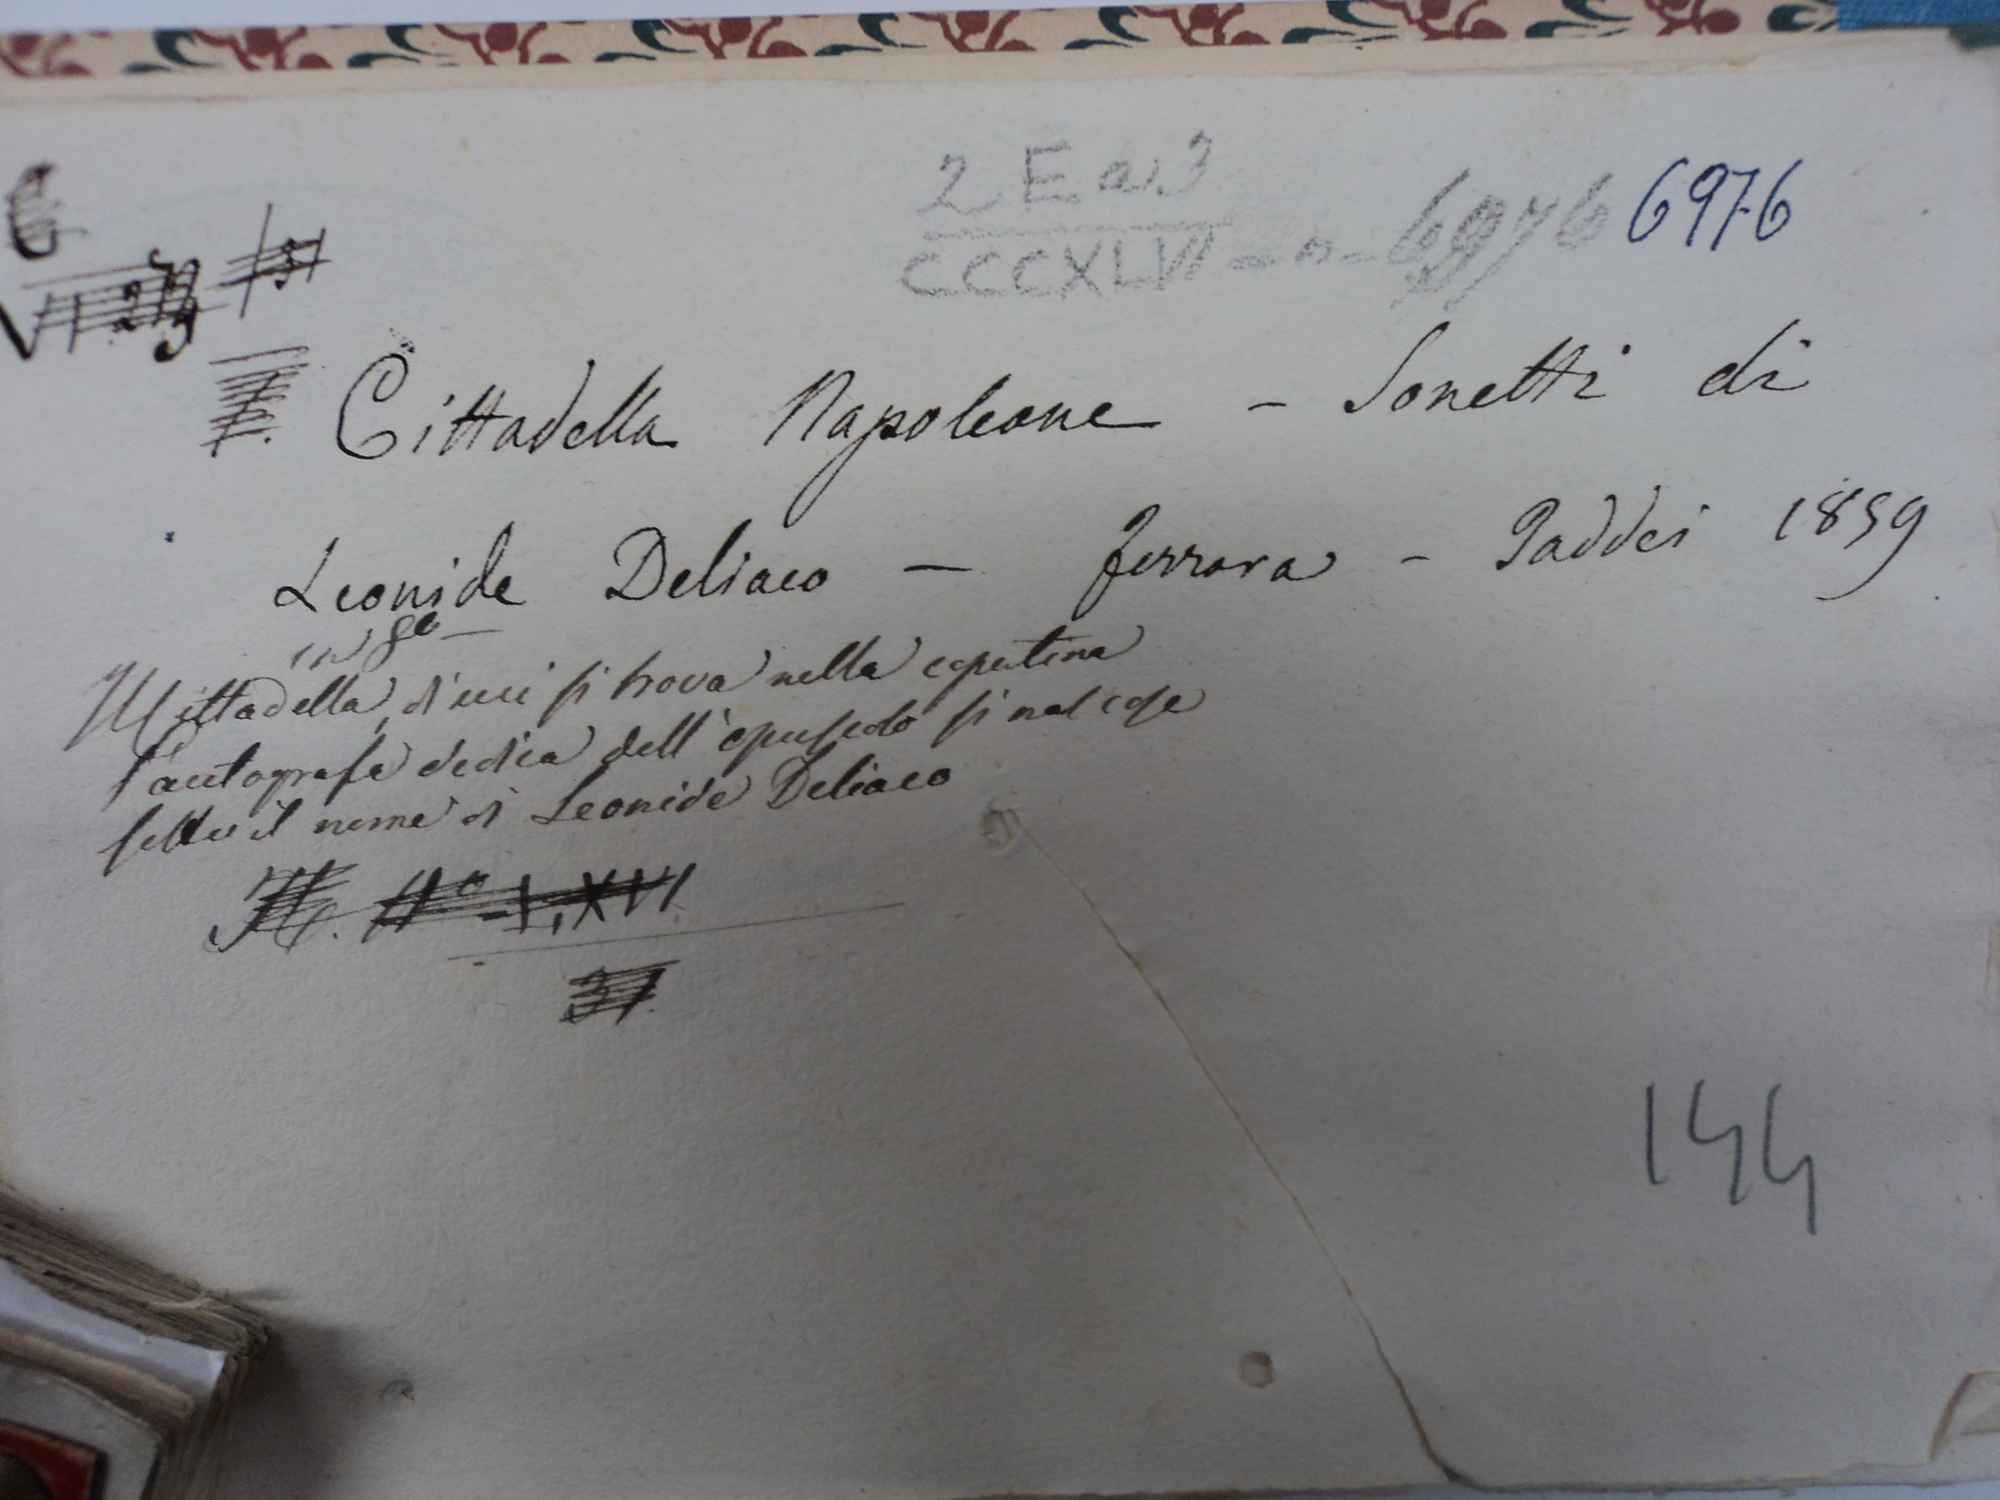 C
2 E a 3
CCCXLVI - n - 6976 6976
VI 2
Cittadella Napoleone - Sonetti di
Leonide Deliaco - Ferrara - Taddei 1859
in 8o -
Il Cittadella, di cui si trova nella copertina
l'autografa dedica dell'opuscolo si nascose
sotto il nome di Leonide Deliaco
H. H° LXVI.
37.
144